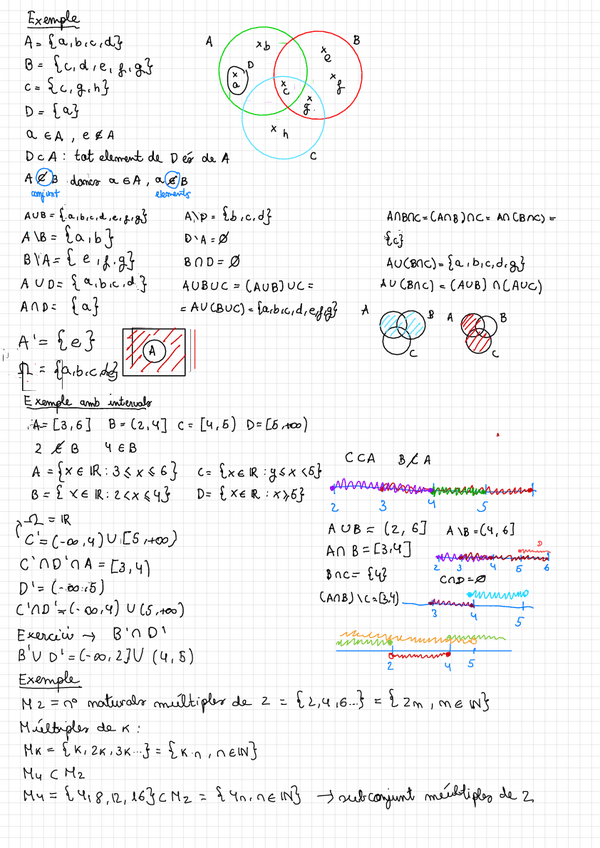 Exemple
A = {a,b,c,d}
B = {c,d,e,f,g}
C = {c,g,h}
D = {a}
a ∈ A, e ∉ A
D ⊂ A : tot element de D és de A
A ⊄ B doncs a ∈ A, a ∉ B
conjunt elements
A B C D
x b
x a
x c
x e
x f
x g
x h
A∪B = {a,b,c,d,e,f,g}
A\B = {a,b}
B\A = {e,f,g}
A∪D = {a,b,c,d}
A∩D = {a}
A\D = {b,c,d}
D\A = ∅
B∩D = ∅
A∪B∪C = (A∪B)∪C =
= A∪(B∪C) = {a,b,c,d,e,f,g}
A∩B∩C = (A∩B)∩C = A∩(B∩C) =
{c}
A∪(B∩C) = {a,b,c,d,g}
A∪(B∩C) = (A∪B)∩(A∪C)
A B C
A B C
A' = {e}
A
Ω = {a,b,c,d,e}
Exemple amb intervals
A = [3,6] B = (2,4] C = [4,5) D = [5,+∞)
2 ∉ B 4 ∈ B
A = {x ∈ ℝ : 3 ≤ x ≤ 6} C = {x ∈ ℝ : 4 ≤ x < 5}
B = {x ∈ ℝ : 2 < x ≤ 4} D = {x ∈ ℝ : x ≥ 5}
C ⊂ A B ⊄ A
2 3 4 5
Ω = ℝ
C' = (-∞,4) ∪ [5,+∞)
C'∩D'∩A = [3,4)
D' = (-∞,5)
C'∩D' = (-∞,4) ∪ (5,+∞)
Exercici → B'∩D'
B'∪D' = (-∞,2] ∪ (4,5)
A∪B = (2,6] A\B = (4,6]
A∩B = [3,4]
B∩C = {4} C∩D = ∅
(A∩B)\C = [3,4)
D
2 3 4 5 6
3 4 5
2 4 5
Exemple
M2 = nº naturals múltiples de 2 = {2,4,6...} = {2n, n ∈ ℕ}
Múltiples de K :
MK = {K, 2K, 3K...} = {K·n, n ∈ ℕ}
M4 ⊂ M2
M4 = {4,8,12,16} ⊂ M2 = {4n, n ∈ ℕ} → subconjunt múltiples de 2